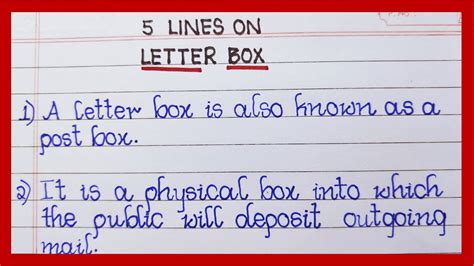 5 LINES ON
LETTER BOX
1) A letter box is also known as a
post box.
2) It is a physical box into which
the public will deposit outgoing
mail.